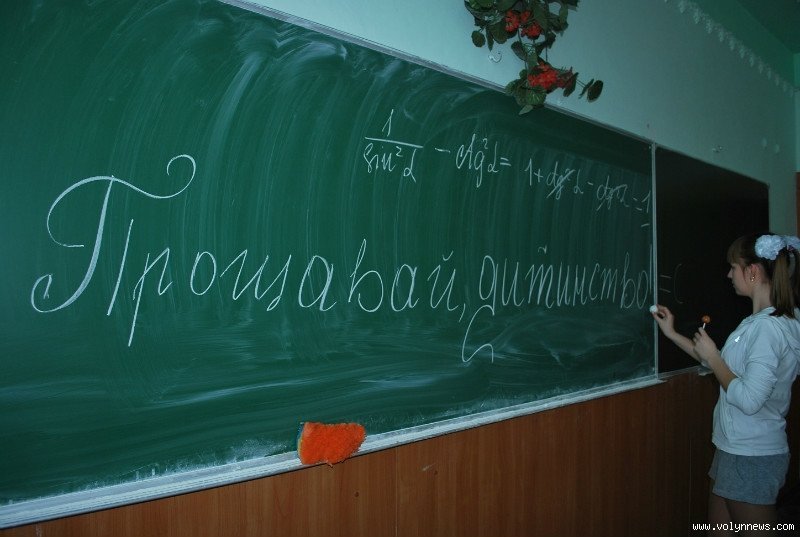 1/sin²α - ctg²α = 1 + ctg²α - ctg²α = 1
Прощавай, дитинство
= C
www.volynnews.com